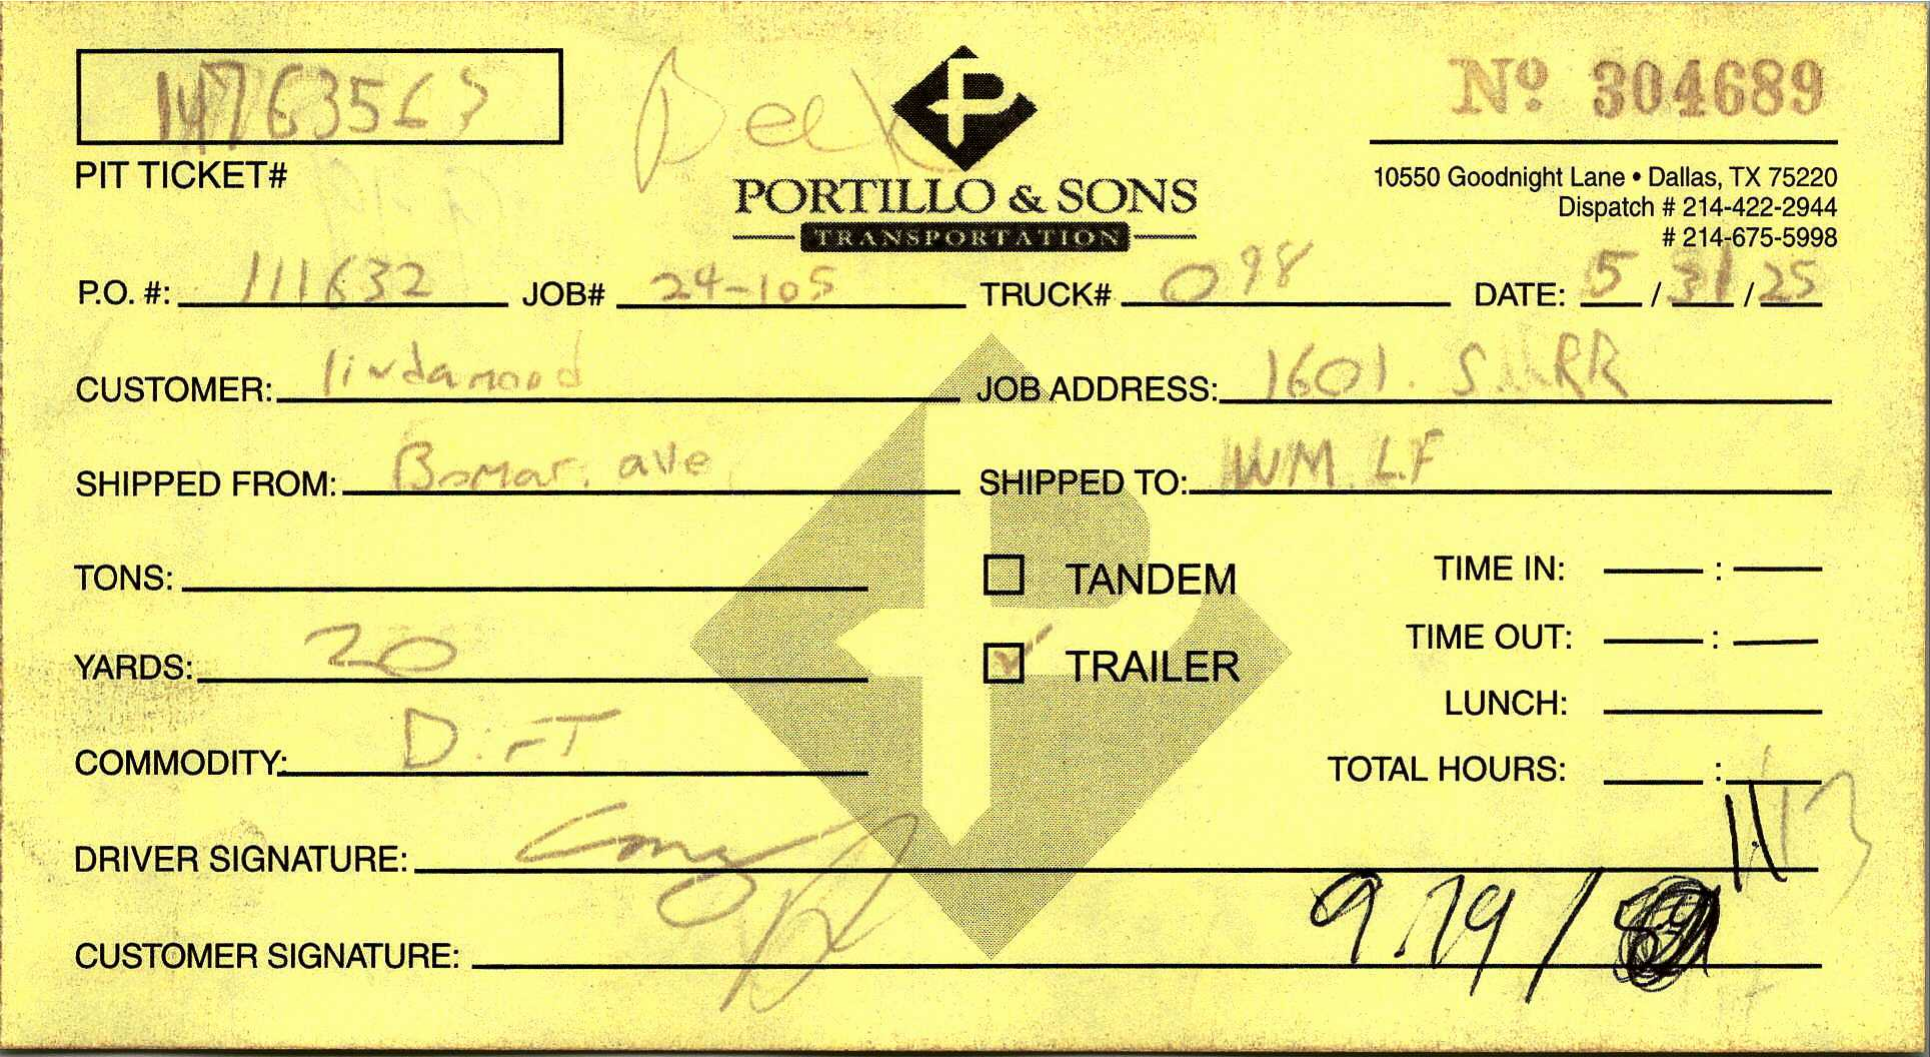 14763563
PIT TICKET#
PORTILLO & SONS
TRANSPORTATION
Nº 304689
10550 Goodnight Lane • Dallas, TX 75220
Dispatch # 214-422-2944
# 214-675-5998
P.O. #: 111632 JOB# 24-105 TRUCK# 098 DATE: 5/31/25
CUSTOMER: lindamood JOB ADDRESS: 1601. S. RR
SHIPPED FROM: Bomar. ave SHIPPED TO: WM LF
TONS:
TANDEM
TIME IN: :
YARDS: 20
TRAILER
TIME OUT: :
LUNCH:
COMMODITY: DirT
TOTAL HOURS: :
DRIVER SIGNATURE:
CUSTOMER SIGNATURE:
9.19 /